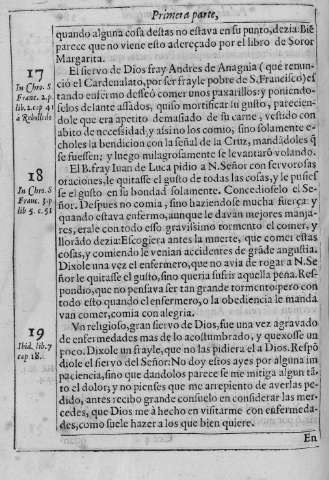 Primera parte,
quando alguna cosa destas no estava en su punto, dezia: Biẽ
parece que no viene esto adereçado por el libro de Soror
Margarita.
17
In Chro. S.
Franc. 2. p.
lib. 1. cap 41
à Rebolledo
El siervo de Dios fray Andres de Anagnia ( que renun-
ciò el Cardenalato, por ser frayle pobre de S. Francisco) es
tando enfermo desseò comer unos paxarillos: y poniendo-
selos delante assados, quiso mortificar su gusto, parecien-
dole que era apetito demasiado de su carne, vestido con
abito de necessidad, y assi no los comiò, sino solamente e-
choles la bendicion con la señal de la Cruz, mandãdoles q̃
se fuessen; y luego milagrosamente se levantarõ volando.
18
In Chro. S.
Franc. 3. p
lib 5. c. 51
El B. fray Iuan de Luca pidio a N. Señor con fervorosas
oraciones, le quitasse el gusto de todas las cosas, y le pusies
se el gusto en su bondad solamente. Concedioselo el Se-
ñor. Despues no comia, sino haziendose mucha fuerça: y
quando estava enfermo, aunque le davan mejores manja-
res, erale con todo esso gravissimo tormento el comer, y
llorãdo dezia: Escogiera antes la muerte, que comer estas
cosas, y comiendo le venian accidentes de grãde angustia.
Dixole una vez el enfermero, que no avia de rogar a N. Se
ñor le quitasse el gusto, sino queria sufrir aquella pena. Res
pondio, que no pensava ser tan grande tormento: pero con
todo esto quando el enfermero, o la obediencia le manda
van comer, comia con alegria.
19
Ibid. lib. 7
cap 18.
Vn religioso, gran siervo de Dios, fue una vez agravado
de enfermedades mas de lo acostumbrado, y quexosse un
poco. Dixole un frayle, que no las pidiera el a Dios. Respõ
diole el siervo del Señor: No doy estos ayes por alguna im
paciencia, sino que dandolos parece se me mitiga algun tã-
to el dolor; y no pienses que me arrepiento de averlas pe-
dido, antes recibo grande consuelo en considerar las mer-
cedes, que Dios me à hecho en visitarme con enfermeda-
des; como suele hazer a los que bien quiere.
En